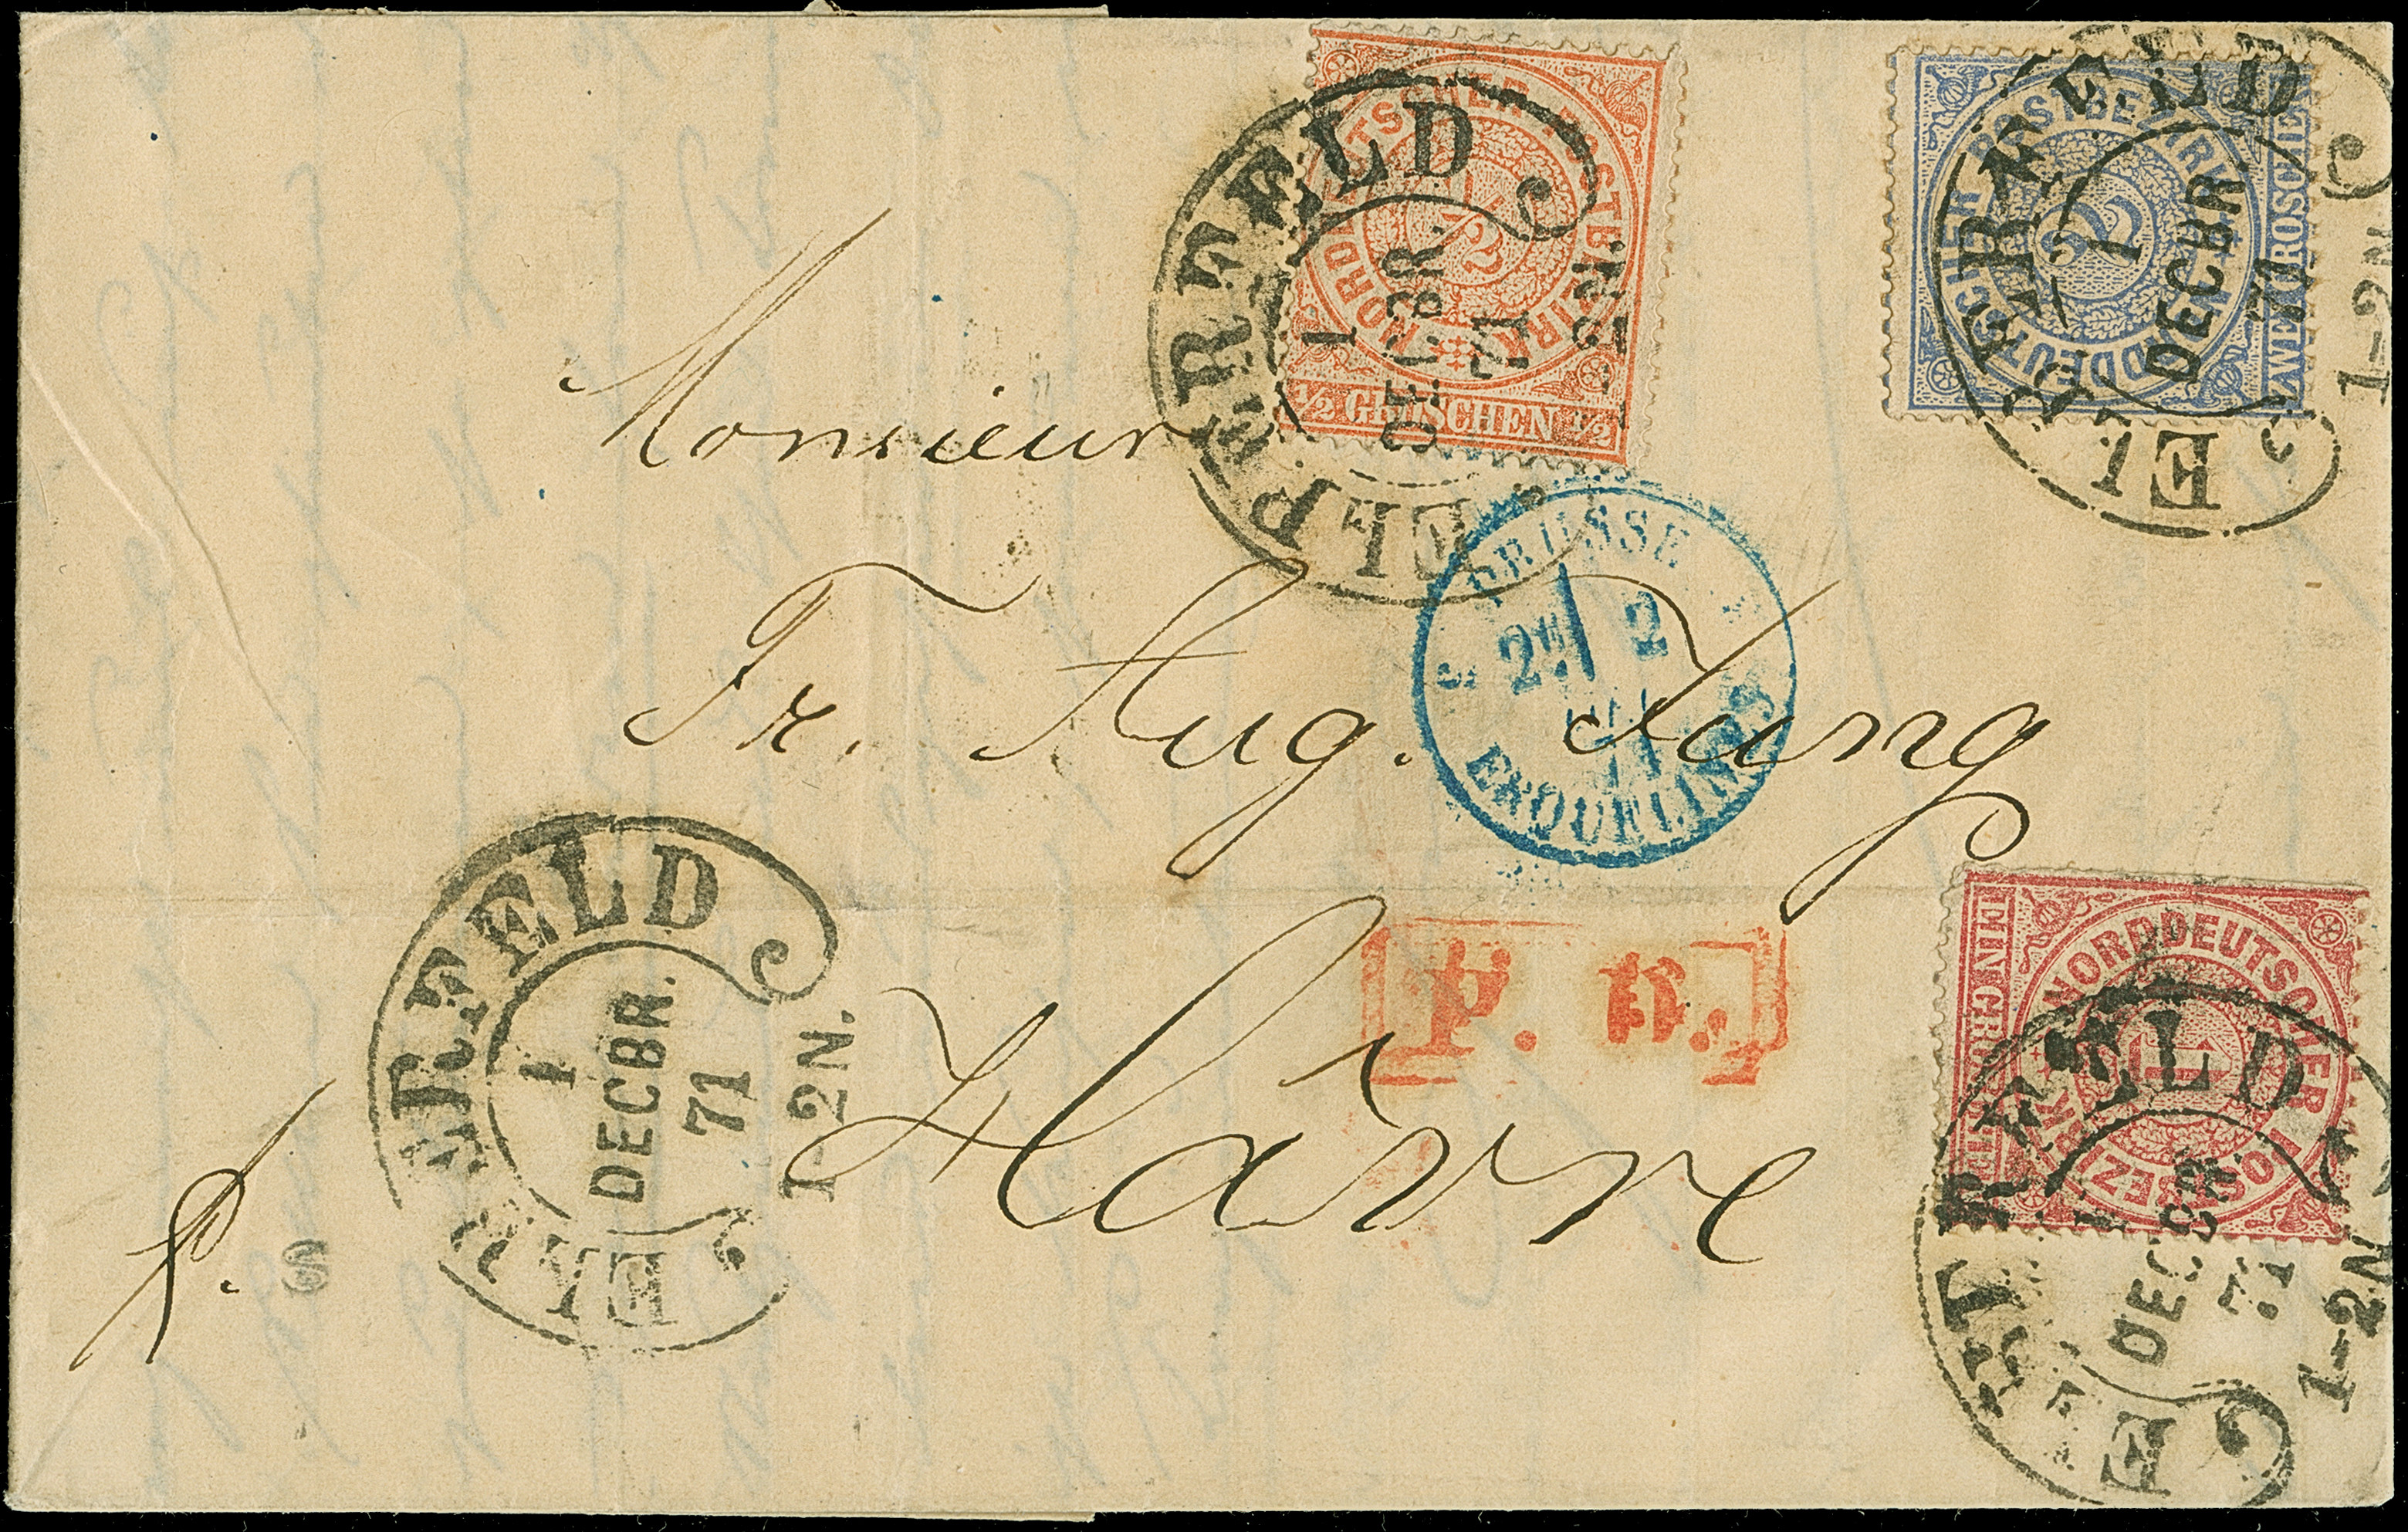 NORDDEUTSCHER POSTBEZIRK
1/2
1/2 GROSCHEN 1/2
ELBERFELD
1
DECBR.
71
1-2N.
NORDDEUTSCHER POSTBEZIRK
2
ZWEI GROSCHEN
ELBERFELD
1
DECBR.
71
1-2N
Monsieur
PRUSSE
2
2
ERQUELINES
Fr. Aug. Jung
Hâvre
P. D.
NORDDEUTSCHER POSTBEZIRK
1
EIN GROSCHEN
ELBERFELD
1
DECBR.
71
1-2N
ELBERFELD
1
DECBR.
71
1-2N.